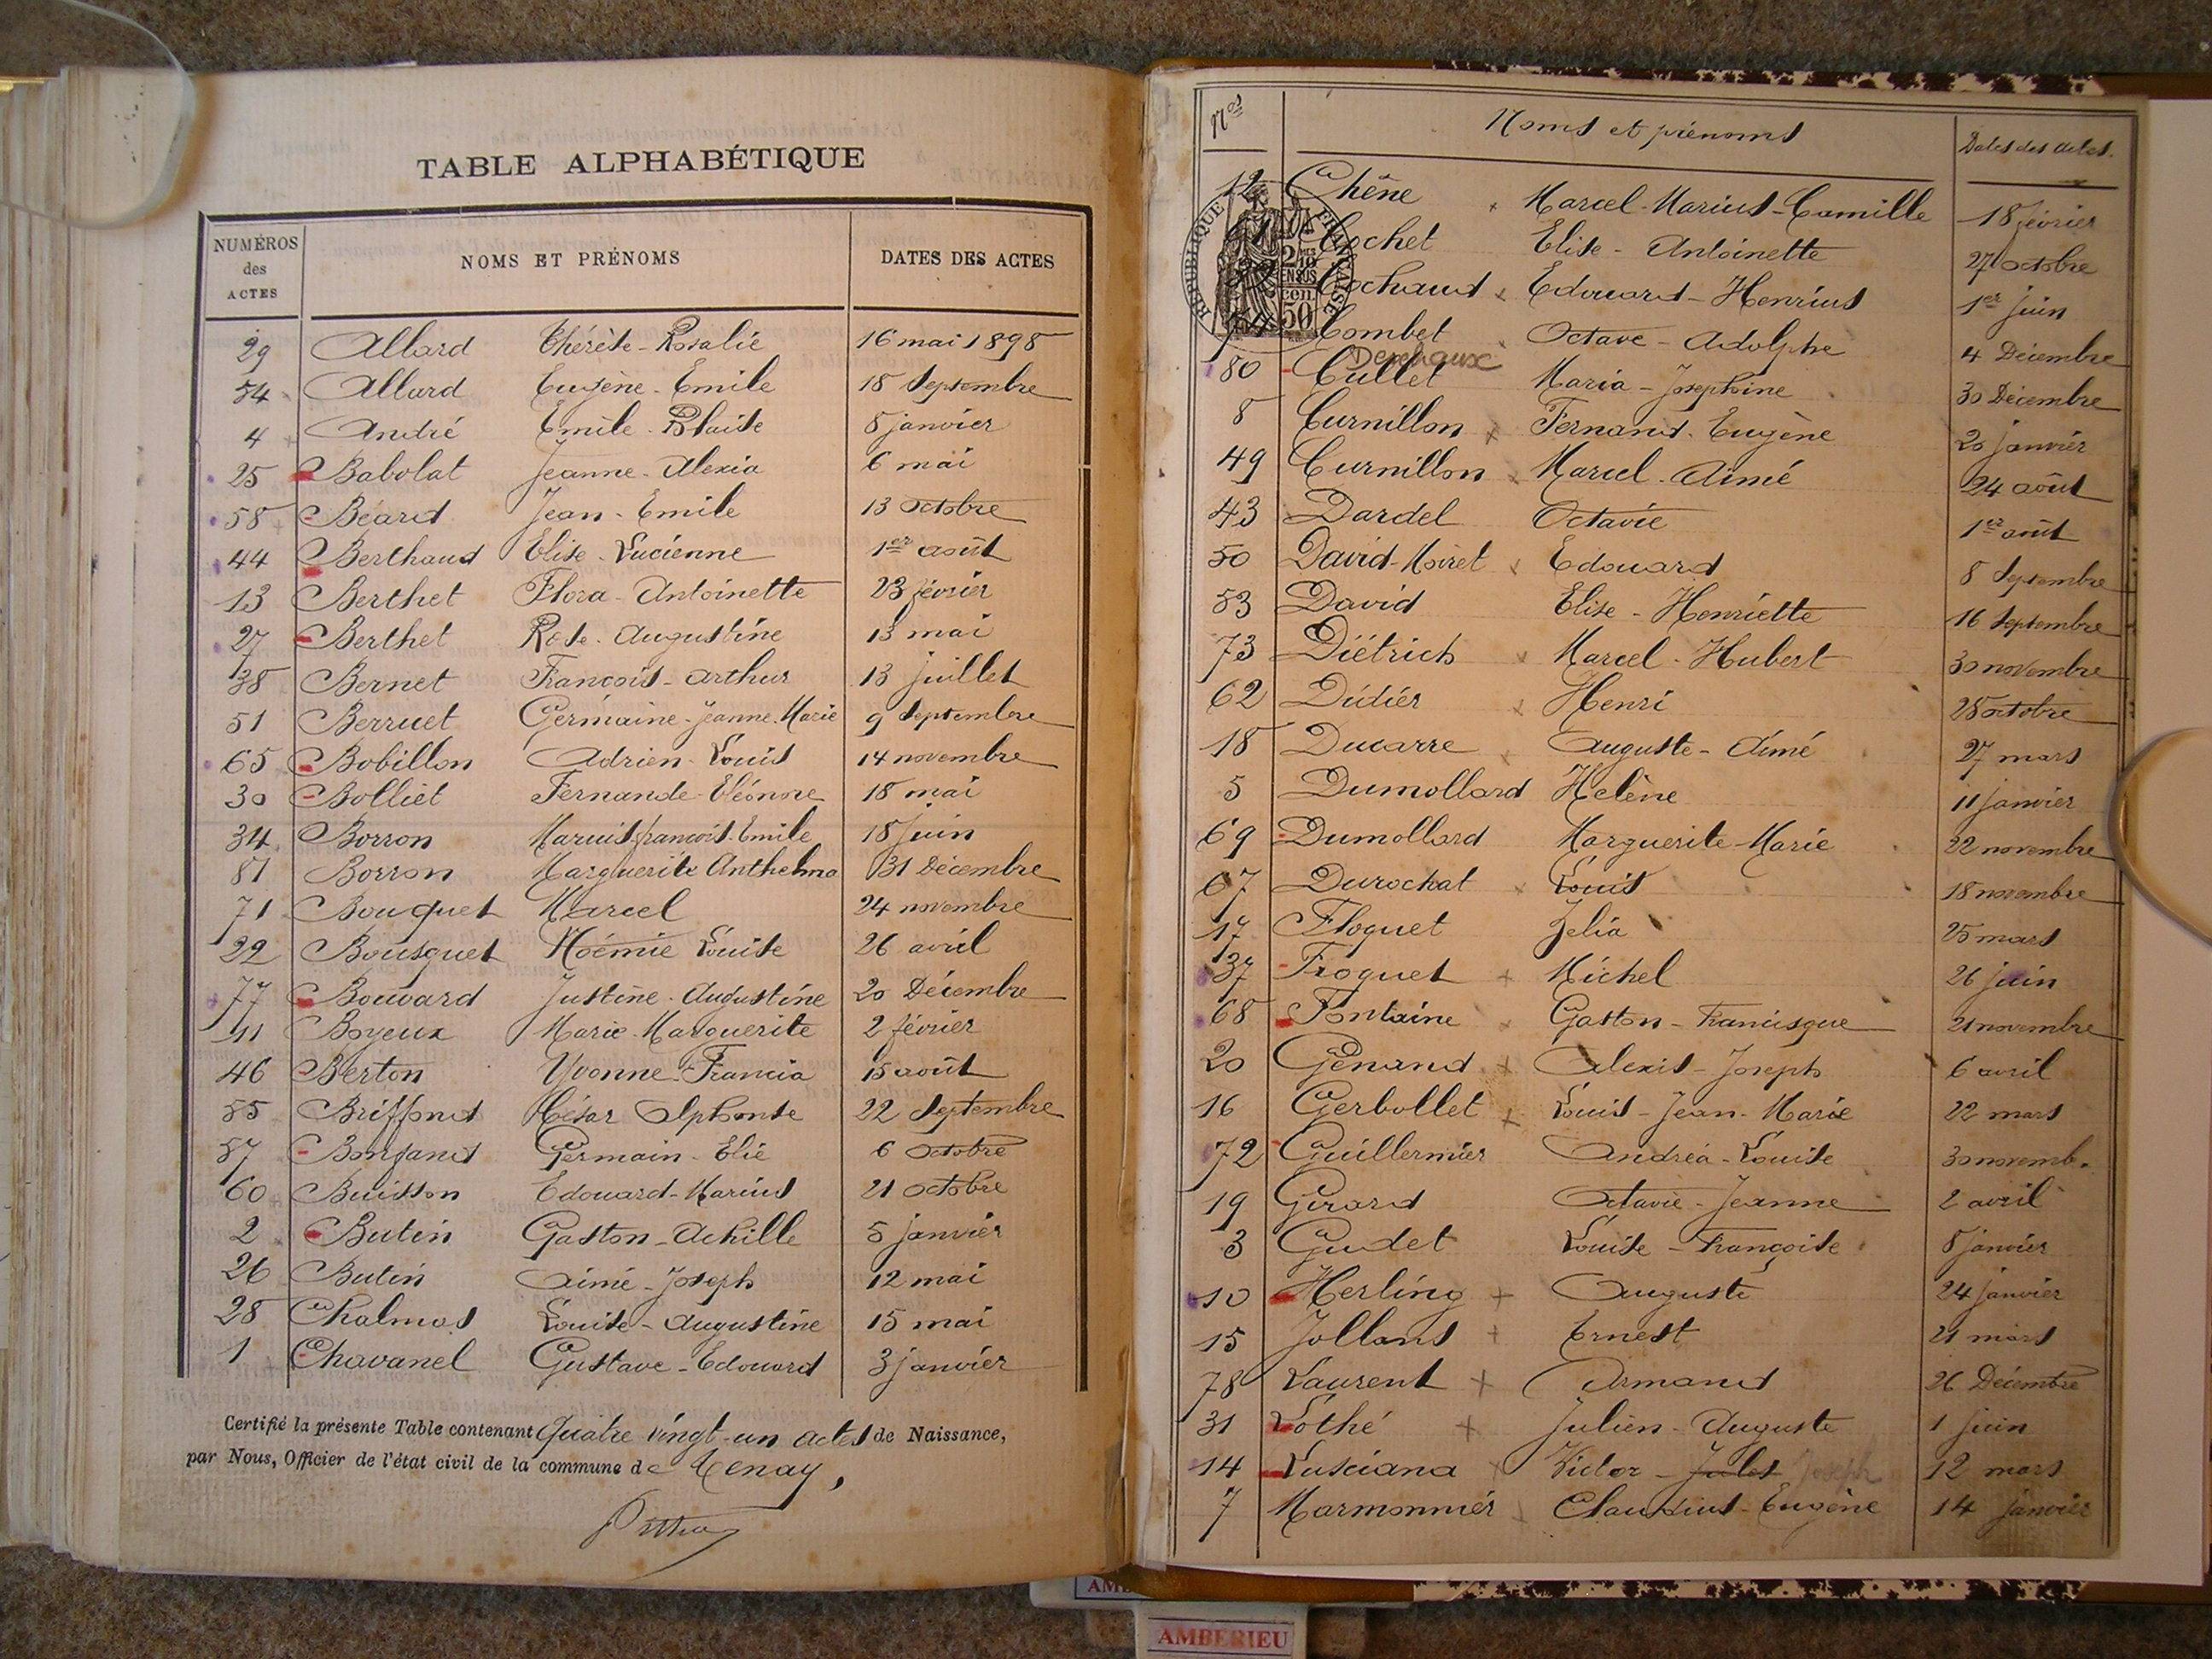 TABLE ALPHABÉTIQUE
NUMÉROS des ACTES NOMS ET PRÉNOMS DATES DES ACTES
29 Allard Thérèse-Rosalie 16 mai 1898
54 Allard Eugène-Emile 15 Septembre
4 André Emile-Blaise 8 janvier
25 Babolat Jeanne-Alexia 6 mai
58 Béard Jean-Emile 13 Octobre
44 Berthaud Elise-Lucienne 1er août
13 Berthet Flora-Antoinette 23 février
27 Berthet Rose-Augustine 13 mai
38 Bernet François-Arthur 13 juillet
51 Berruet Germaine-Jeanne-Marie 9 Septembre
65 Bobillon Adrien-Louis 14 novembre
30 Bolliet Fernande-Eléonore 18 mai
34 Borron Marius françois-Emile 18 Juin
81 Borron Marguerite Anthelma 31 Décembre
71 Bouquet Marcel 24 novembre
22 Bousquet Noémie Louise 26 avril
77 Bouvard Justine-Augustine 20 Décembre
11 Boyeux Marie-Marguerite 2 février
46 Berton Yvonne-Francia 15 août
55 Briffond César Alphonse 22 Septembre
57 Bonjand Germain-Elie 6 Octobre
60 Buisson Edouard-Marius 21 Octobre
2 Butin Gaston-Achille 5 janvier
26 Butin Aimé-Joseph 12 mai
28 Chalmas Louise-Augustine 15 mai
1 Chavanel Gustave-Edouard 3 janvier
Certifié la présente Table contenant Quatre vingt-un actes de Naissance,
par Nous, Officier de l'état civil de la commune de Tenay,
Nos Noms et prénoms Dates des actes.
12 Chêne Marcel-Marius-Camille 18 février
RÉPUBLIQUE FRANÇAISE
61 Cochet Elise-Antoinette 27 octobre
2/10 EN SUS
32 Cochaud Edouard-Henrius 1er juin
cen. 50
74 Combet Octave-Adolphe 4 Décembre
80 Cullet Maria-Josephine 30 Décembre
8 Curnillon Fernand-Eugène 20 janvier
49 Curnillon Marcel-Aimé 24 août
43 Dardel Octavie 1er août
50 David-Moiret Edouard 8 Septembre
53 David Elise-Henriette 16 Septembre
73 Diétrich Marcel-Hubert 30 novembre
62 Didier Henri 28 octobre
18 Ducarre Auguste-Aimé 27 mars
5 Dumollard Helène 11 janvier
69 Dumollard Marguerite-Marie 22 novembre
67 Durochat Louis 18 novembre
17 Floquet Zelia 25 mars
37 Froquet Michel 26 juin
68 Fontaine Gaston-Francisque 21 novembre
20 Génand Alexis-Joseph 6 avril
16 Gerbollet Louis-Jean-Marie 22 mars
72 Guillermier Andréa-Louise 30 novemb.
19 Girard Octavie-Jeanne 2 avril
3 Gudet Louise-Françoise 8 janvier
10 Herling Auguste 24 janvier
15 Jolland Ernest 21 mars
78 Laurent Armand 26 Décembre
31 Lothé Julien-Auguste 1 juin
14 Lusciana Victor-Jules Joseph 12 mars
7 Marmonnier Claudius-Eugène 14 janvier
AMBERIEU